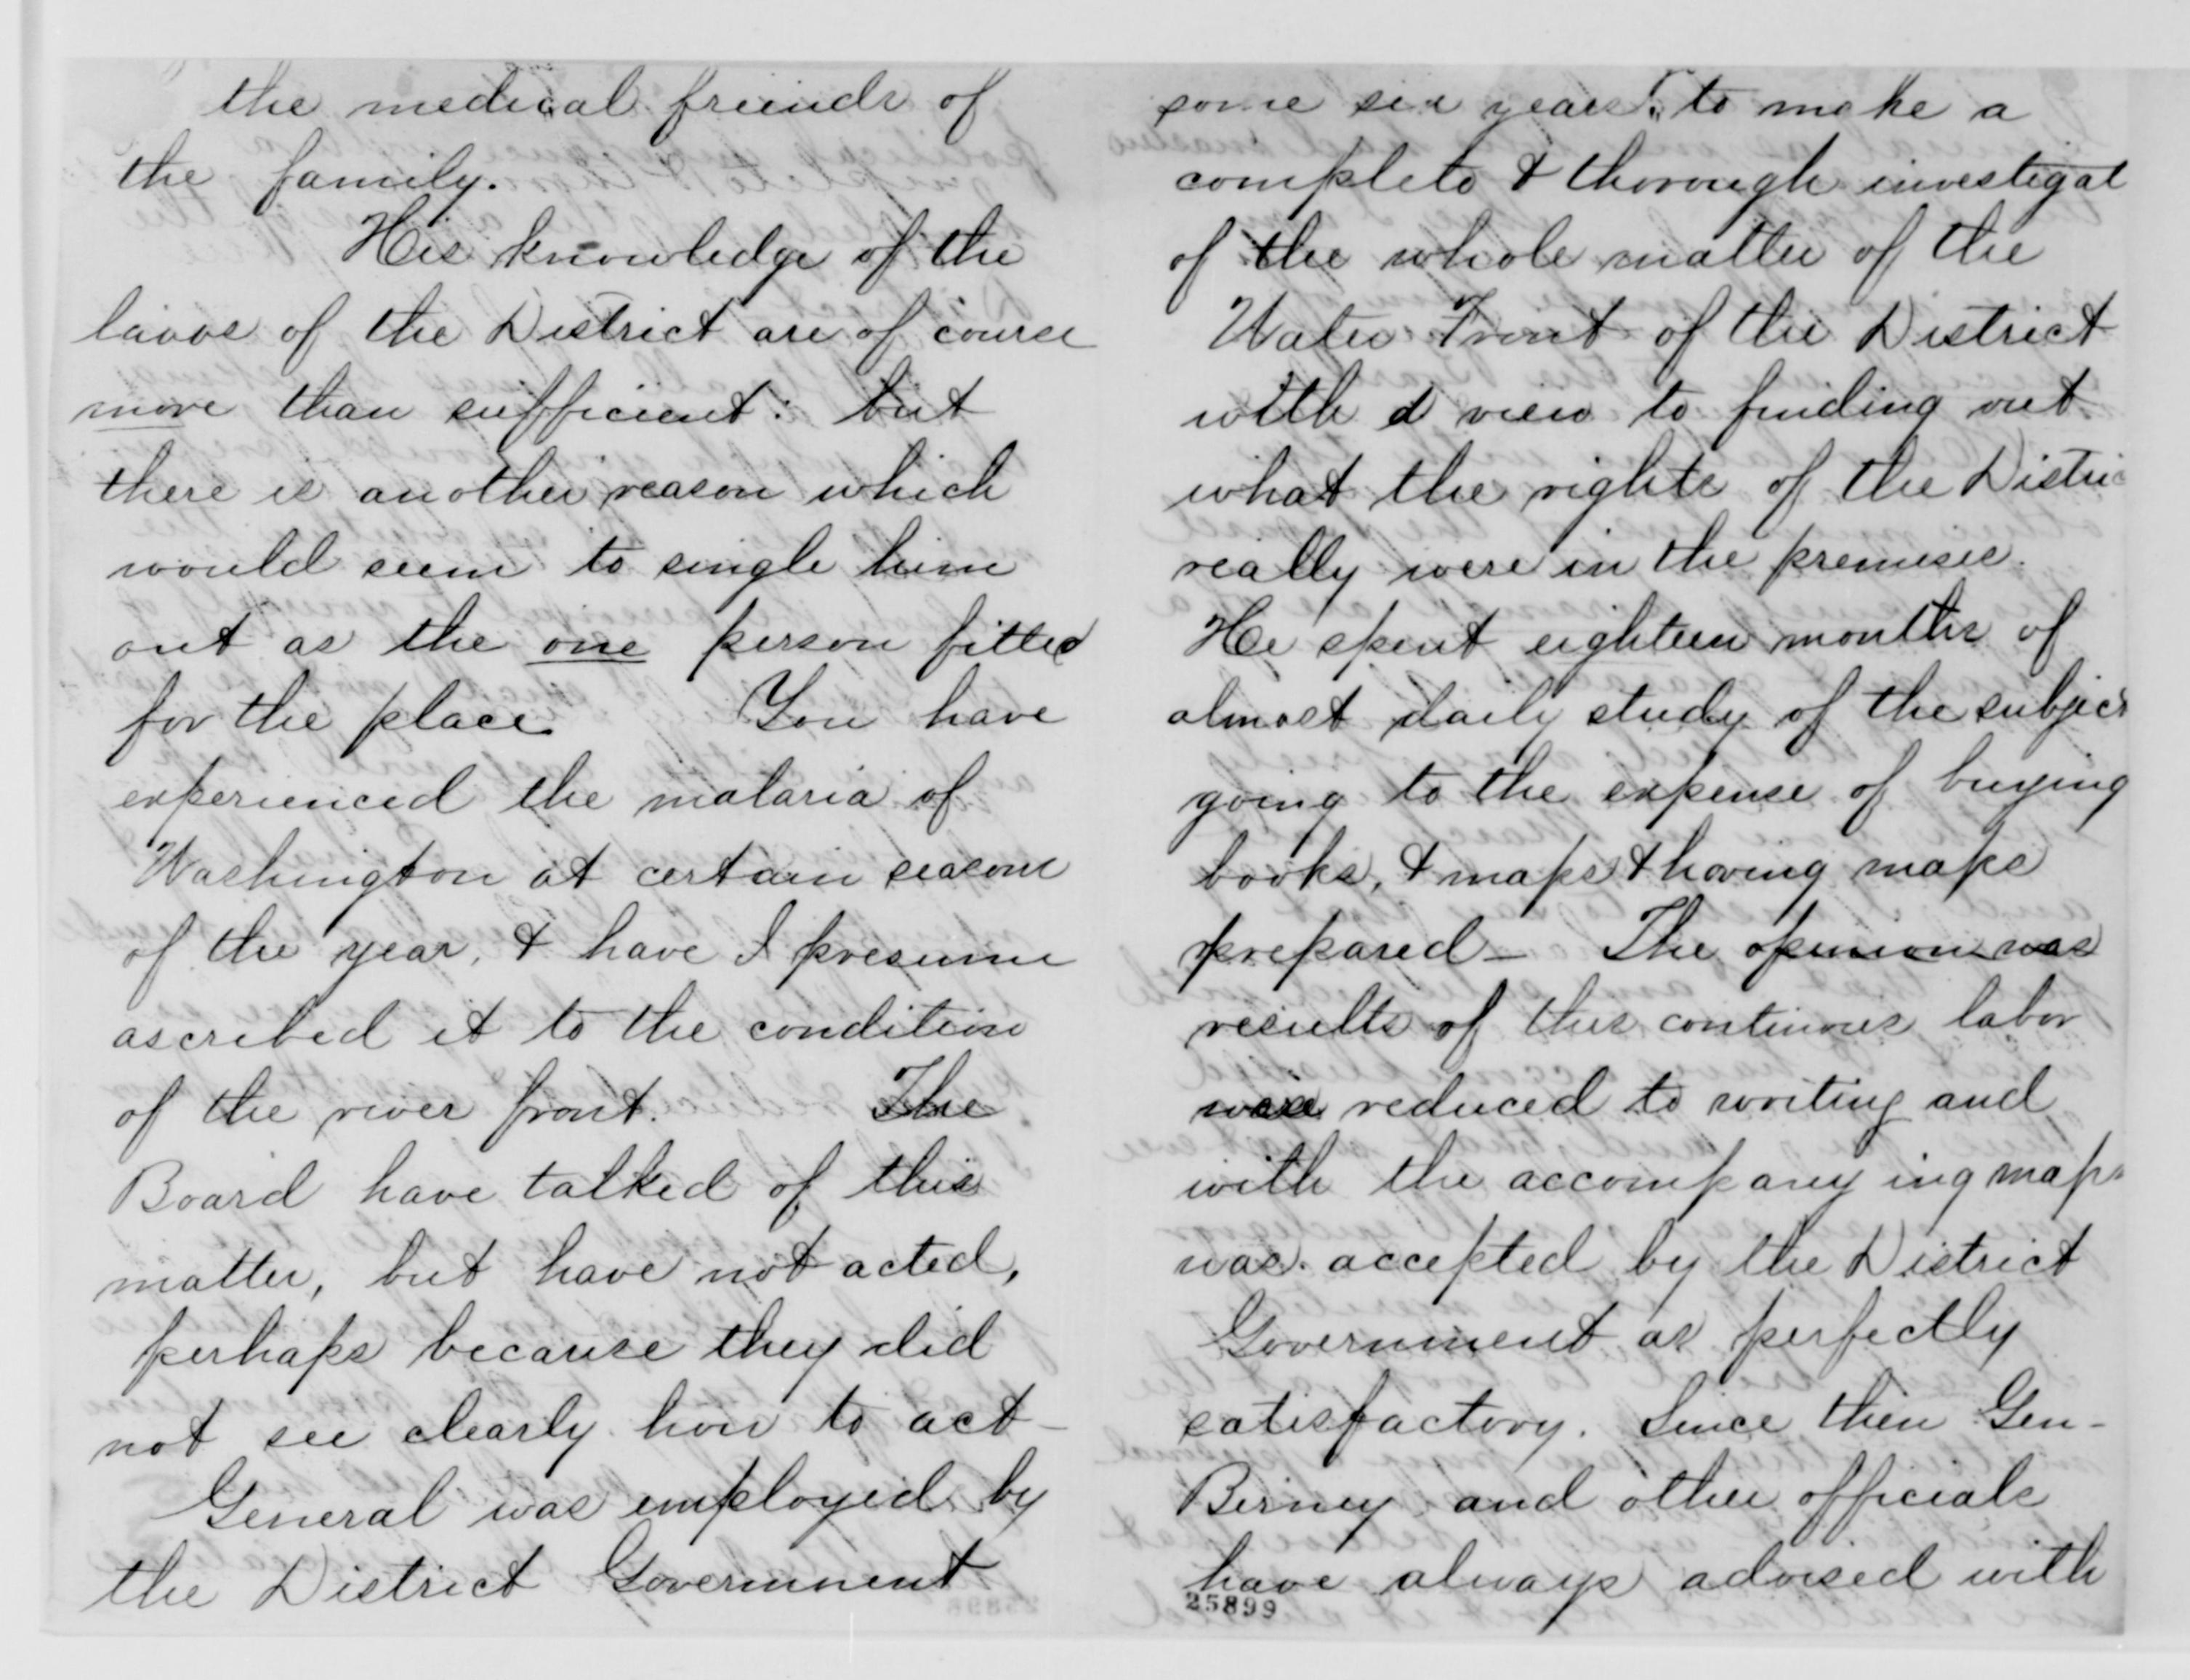 the medical friends of
the family.
His knowledge of the
laws of the District are of course
more than sufficient: but
there is another reason which
would seem to single him
out as the one person fitted
for the place. You have
experienced the malaria of
Washington at certain seasons
of the year, & have I presume
ascribed it to the condition
of the river front. The
Board have talked of this
matter, but have not acted,
perhaps because they did
not see clearly how to act –
General was employed by
the District Government
some six years to make a
complete & thorough investigat
of the whole matter of the
Water Front of the District
with a view to finding out
what the rights of the Distric
really were in the premises.
He spent eighteen months of
almost daily study of the subject
going to the expense of buying
books, & maps & having maps
prepared – The opinion was
results of this continous labor
were reduced to writing and
with the accompany ing maps
was accepted by the District
Government as perfectly
satisfactory. Since then Gen-
Birney and other officials
have always advised with
25899